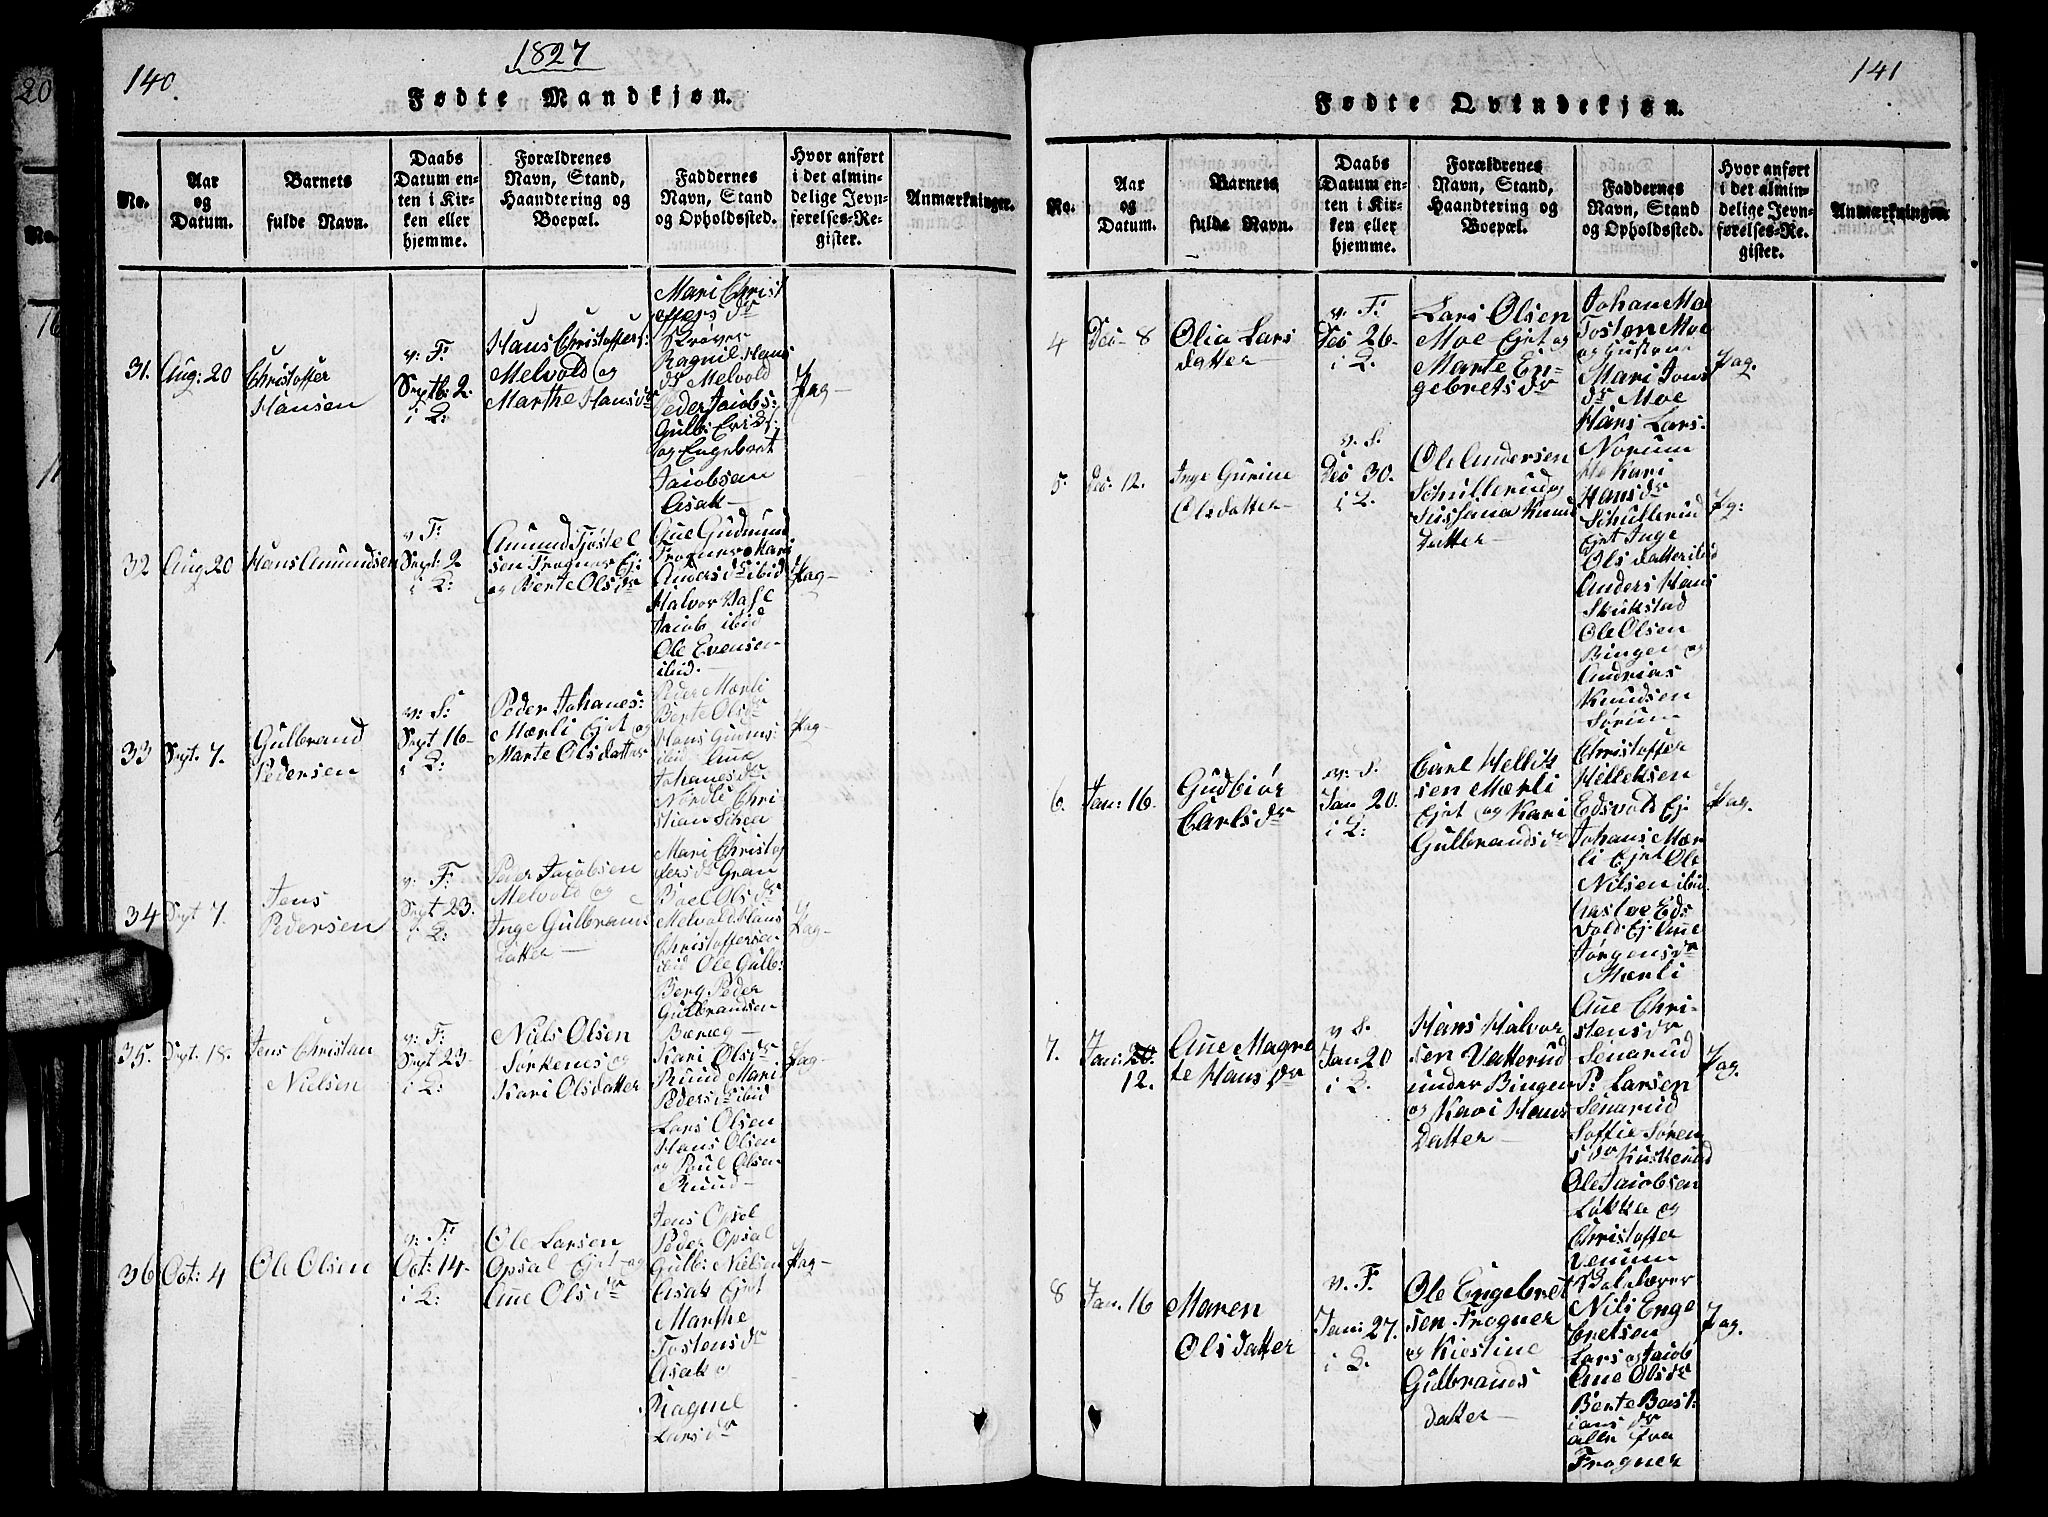 140.
1827
Fødte Mandkjøn.
No.
Aar
og
Datum.
Barnets
fulde Navn.
Daabs
Datum en-
ten i Kir-
ken eller
hjemme.
Forældrenes
Navn, Stand,
Haandtering og
Boepæl.
Faddernes
Navn, Stand
og Opholdssted.
Hvor anført
i det almin-
delige Jevn-
førelses-Re-
gister.
Anmærkninger.
31.
Aug: 20
Christoffer
Hansen
v: F:
Septb. 2.
i L:
Hans Christoffers:
Melvold og
Marthe Hansdr
Mari Christ
offersdr
Krøver
Ragnil Hans
dr Melvold
Peder Jacobs:
Gulb: Eriks:
og Engebret
Jacobsen
Asak
Pag
32
Aug 20
Hans Amundsen
v: F:
Sept: 2
i L:
Amund Tjøstel
sen Frogner Ej:
og Berte Olsdr
Ane Gudmund
Frogner Kari
Andersdr ibid
Halvor
Jacob ibid
Ole Evensen
ibid.
Pag
33
Sept. 7.
Gulbrand
Pedersen
v: S:
Sept 16
i L:
Peder Johanes:
Mærli Ejet og
Marte Olsdatter
Peder Mærli
Berte Olsdr
Hans
ibid Ane
Johanesdr
Nordli Chri
stian
Pag
34
Sept 7.
Jens
Pedersen
v: F:
Sept 23.
i L:
Peder Jacobsen
Melvold og
Inge Gulbrans
datter
Mari Christof
fersdr Gran
Boel Olsdr
Melvold Hans
Christoffersen
ibid Ole Gulb:
Berg Peder
Gulbrandsen
Pag
35.
Sept. 18.
Jens Christan
Nielsen
v: F:
Sept 23
i L:
Niels Olsen
Sørkenes og
Kari Olsdatter
Kari Olsdr
Ruud Mari
Pedersdr ibid
Lars Olsen
Hans Olsen
og Poul Olsen
Ruud
Pag
36
Oct: 4
Ole Olsen
v: F:
Oct: 14
i L:
Ole Larsen
Opsal Ejet og
Ane Olsdr
Jens Opsal
Peder Opsal
Gulb: Nielsen
Asak Ejet
Marthe
Tostensdr
Asak
Ragne
Larsdr
Pag
141
Fødte Qvindekjøn.
No.
Aar
og
Datum.
Barnets
fulde Navn.
Daabs
Datum en-
ten i Kir-
ken eller
hjemme.
Forældrenes
Navn, Stand,
Haandtering og
Boepæl.
Faddernes
Navn, Stand
og Opholdssted.
Hvor anført
i det almin-
delige Jevn-
førelses-Re-
gister.
Anmærkninger.
4
Des 8
Olia Lars
datter
v. F:
Des 26
i L:
Lars Olsen
Moe Ejet og
Marte En-
gebretsdr
Johan Moe
Tosten Moe
og
Mari Jons
dr Moe
Pag.
5.
Des. 12.
Inge Gurine
Olsdatter
v. S.
Des 30.
i L.
Ole Andersen
Schullerud og
Sussana Knud
datter
Hans Lars.
Norum
Kari
Hansdr
Schullerud
Ejet Inge
Olsdatter ibid
Anders Hans
Skukstad
Ole Olsen
Bingen og
Andreas
Knudsen
Sørum
Pag:
6.
Jan: 16.
Gudbiør
Carlsdr
v. S.
Jan 20.
i L:
Carl Hellik
sen Mærli
Ejet og Kari
Gulbrandsdr
Christoffer
Helleksen
Edsvold Ej.
Johans Mær
li Ejet Ole
Nilsen ibid.
Eds
vold Ej. Ane
Jørgensdr
Mærli
Pag.
7.
Jan: 20.
12.
Ane Magre
te Hansdr
v S.
Jan 20
i L.
Hans Halvor
sen Vatterud
under Bingen
og Kari Hans
datter
Ane Chri-
stensdr
Senarud
P. Larsen
Senarud
Soffie Søren
sdr Kuskerud
Ole Jacobsen
Løkka og
Christoffer
Venum
Pag.
8
Jan. 16
Maren
Olsdatter
v. F.
Jan: 27.
i L.
Ole Engebret
sen Frogner
og Kiestine
Gulbrands
datter
Nils Enge
bretsen
Lars og Jacob
Ane Olsdr
Berte Bast
iansdr
alle fra
Frogner
Pag.